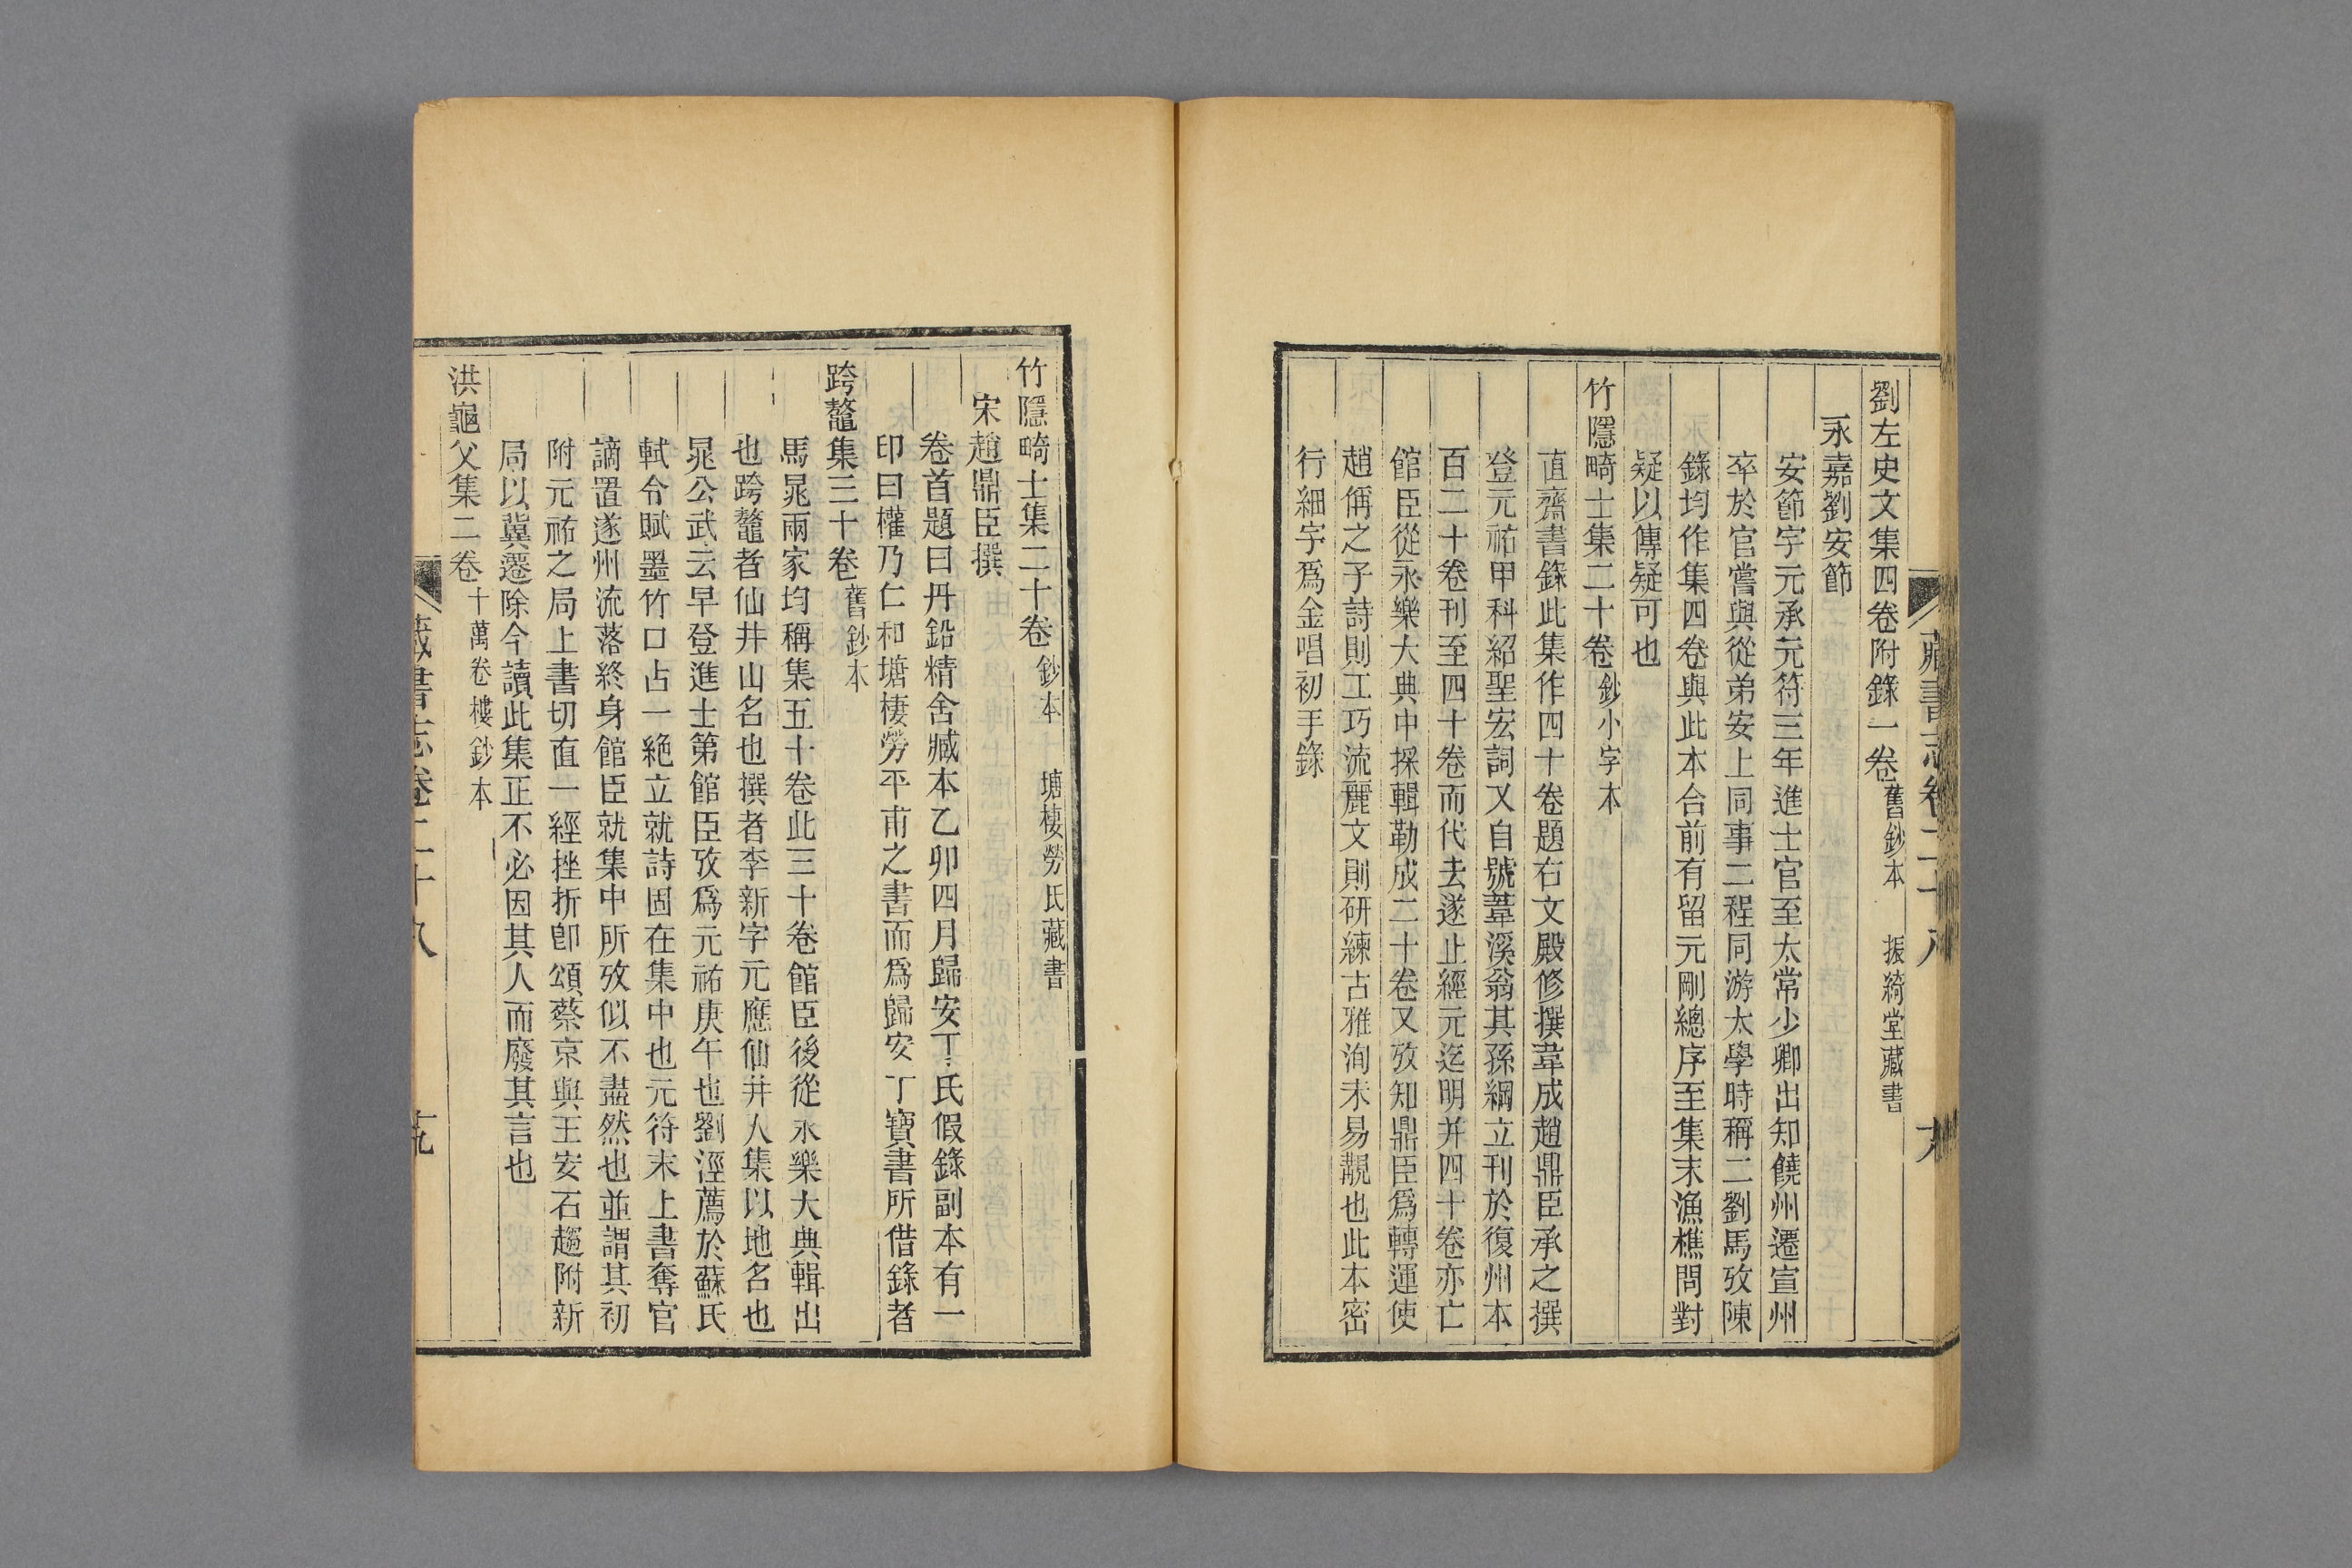 劉左史文集四卷附錄一卷舊鈔本 振綺堂藏書
永嘉劉安節
安節字元承元符三年進士官至太常少卿出知饒州遷宣州
卒於官嘗與從弟安上同事二程同游太學時稱二劉馬攷陳
錄均作集四卷與此本合前有留元剛總序至集末漁樵問對
疑以傳疑可也
竹隱畸士集二十卷鈔小字本
直齋書錄此集作四十卷題右文殿修撰韋成趙鼎臣承之撰
登元祐甲科紹聖宏詞又自號葦溪翁其孫綱立刊於復州本
百二十卷刊至四十卷而代去遂止經元迄明并四十卷亦亡
館臣從永樂大典中採輯勒成二十卷又攷知鼎臣爲轉運使
趙偁之子詩則工巧流麗文則研練古雅洵未易覯也此本密
行細字爲金唱初手錄
竹隱畸士集二十卷鈔本 塘棲勞氏藏書
宋趙鼎臣撰
卷首題曰丹鉛精舍臧本乙卯四月歸安丁氏假錄副本有一
印曰權乃仁和塘棲勞平甫之書而爲歸安丁寶書所借錄者
跨鼇集三十卷舊鈔本
馬晁兩家均稱集五十卷此三十卷館臣後從永樂大典輯出
也跨鼇者仙井山名也撰者李新字元應仙井人集以地名也
晁公武云早登進士第館臣攷爲元祐庚午也劉涇薦於蘇氏
軾令賦墨竹口占一絶立就詩固在集中也元符末上書奪官
謫置遂州流落終身館臣就集中所攷似不盡然也並謂其初
附元祐之局上書切直一經挫折卽頌蔡京與王安石趨附新
局以冀遷除今讀此集正不必因其人而廢其言也
洪龜父集二卷十萬卷樓鈔本
藏書志卷二十八